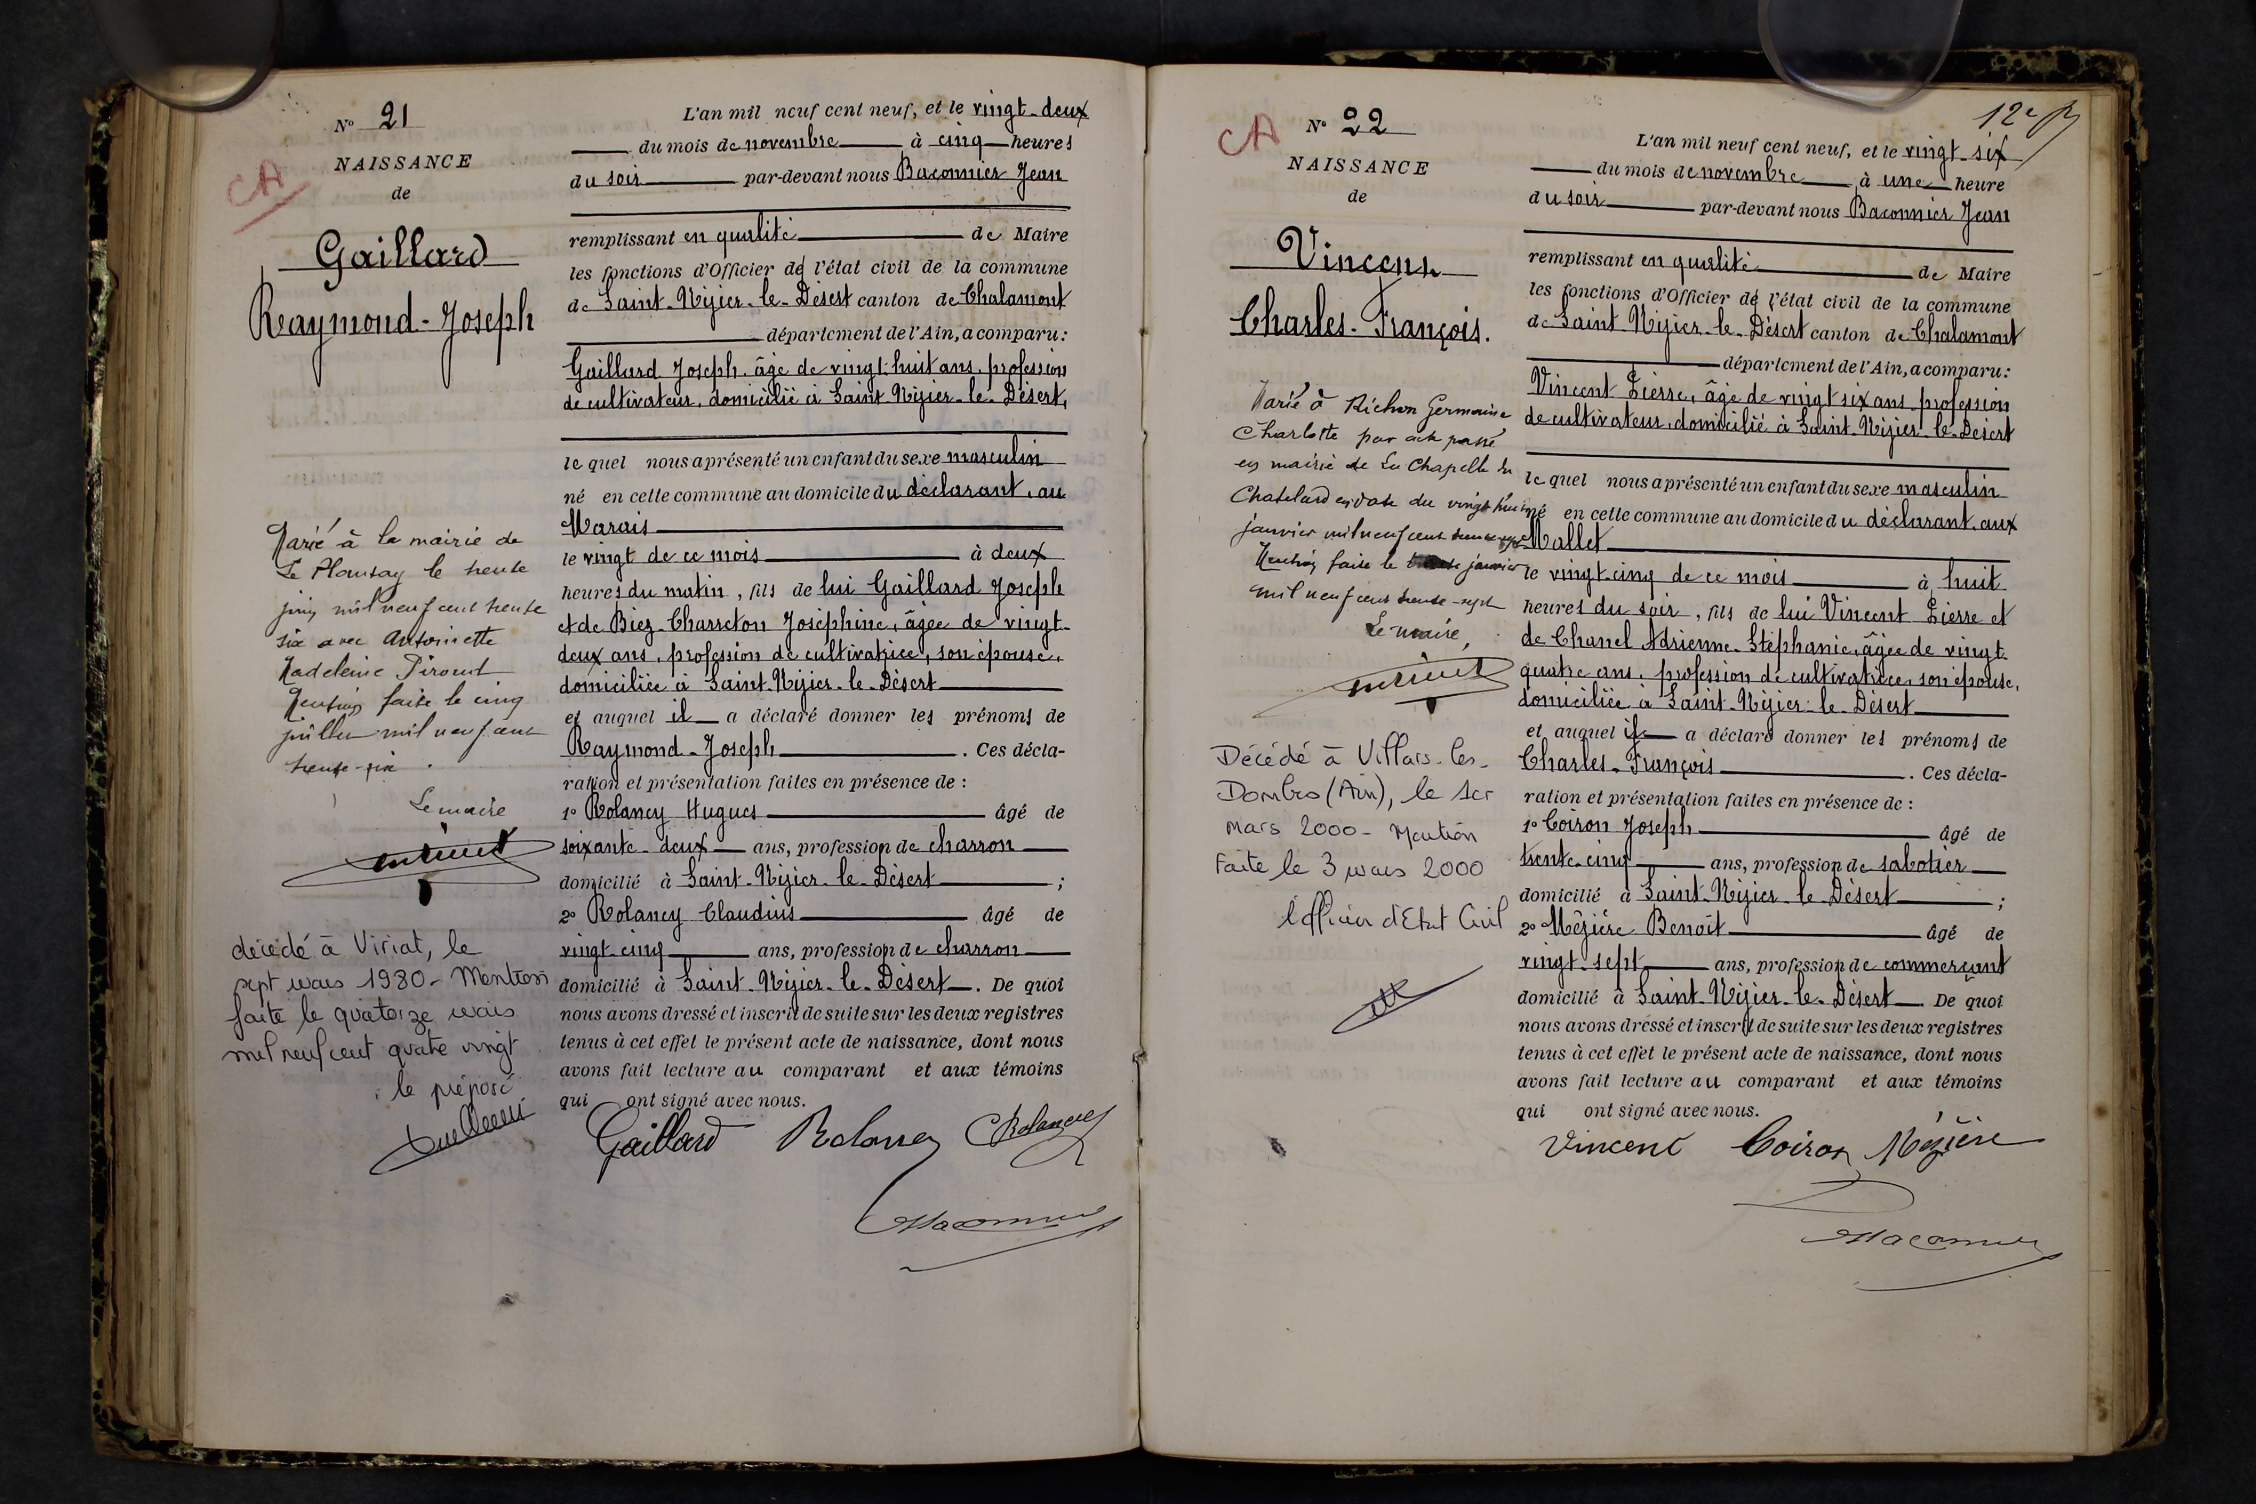 N° 21
NAISSANCE
de
CA
Gaillard
Raymond-Joseph
Marié à la mairie de
Le Plantay le trente
juin mil neuf cent trente
six avec Antoinette
Madeleine Piroud
Mention faite le cinq
juillet mil neuf cent
trente-six.
Le maire
décédé à Viriat, le
sept mars 1980 - Mention
faite le quatorze mars
mil neuf cent quatre vingt
le préposé
L'an mil neuf cent neuf, et le vingt-deux
du mois de novembre à cinq heures
du soir par-devant nous Baconnier Jean
remplissant en qualité de Maire
les fonctions d'Officier de l'état civil de la commune
de Saint-Nizier-le-Désert canton de Chalamont
département de l'Ain, a comparu:
Gaillard Joseph, âgé de vingt-huit ans, profession
de cultivateur, domicilié à Saint-Nizier-le-Désert,
le quel nous a présenté un enfant du sexe masculin
né en cette commune au domicile du déclarant, au
Marais
le vingt de ce mois à deux
heures du matin, fils de lui Gaillard Joseph
et de Biez-Charreton Joséphine, âgée de vingt-
deux ans, profession de cultivatrice, son épouse,
domiciliée à Saint-Nizier-le-Désert
et auquel il a déclaré donner les prénoms de
Raymond-Joseph. Ces décla-
ration et présentation faites en présence de :
1° Rolancy Hugues âgé de
soixante-deux ans, profession de charron
domicilié à Saint-Nizier-le-Désert ;
2° Rolancy Claudius âgé de
vingt-cinq ans, profession de charron
domicilié à Saint-Nizier-le-Désert. De quoi
nous avons dressé et inscrit de suite sur les deux registres
tenus à cet effet le présent acte de naissance, dont nous
avons fait lecture au comparant et aux témoins
qui ont signé avec nous.
Gaillard Rolancy C Rolancy
Baconnier
12e
CA
N° 22
NAISSANCE
de
Vincent
Charles-François.
Marié à Richon Germaine
Charlotte par acte passé
en mairie de La Chapelle du
Chatelard en date du vingt huit
janvier mil neuf cent trente sept
Mention faite le janvier
mil neuf cent trente-sept
Le maire,
Décédé à Villars-les-
Dombes (Ain), le 1er
mars 2000 - Mention
Faite le 3 mars 2000
l'officier d'Etat Civil
L'an mil neuf cent neuf, et le vingt-six
du mois de novembre à une heure
du soir par-devant nous Baconnier Jean
remplissant en qualité de Maire
les fonctions d'Officier de l'état civil de la commune
de Saint-Nizier-le-Désert canton de Chalamont
département de l'Ain, a comparu:
Vincent Pierre, âgé de vingt six ans profession
de cultivateur, domicilié à Saint-Nizier-le-Désert
le quel nous a présenté un enfant du sexe masculin
né en cette commune au domicile du déclarant, aux
Mallet
le vingt-cinq de ce mois à huit
heures du soir, fils de lui Vincent Pierre et
de Chanel Adrienne-Stéphanie, âgée de vingt-
quatre ans, profession de cultivatrice, son épouse,
domiciliée à Saint-Nizier-le-Désert
et auquel il a déclaré donner les prénoms de
Charles-François. Ces décla-
ration et présentation faites en présence de :
1° Coiron Joseph âgé de
trente-cinq ans, profession de sabotier
domicilié à Saint-Nizier-le-Désert ;
2° Mézière Benoît âgé de
vingt-sept ans, profession de commerçant
domicilié à Saint-Nizier-le-Désert De quoi
nous avons dressé et inscrit de suite sur les deux registres
tenus à cet effet le présent acte de naissance, dont nous
avons fait lecture au comparant et aux témoins
qui ont signé avec nous.
Vincent Coiron Mézière
Baconnier